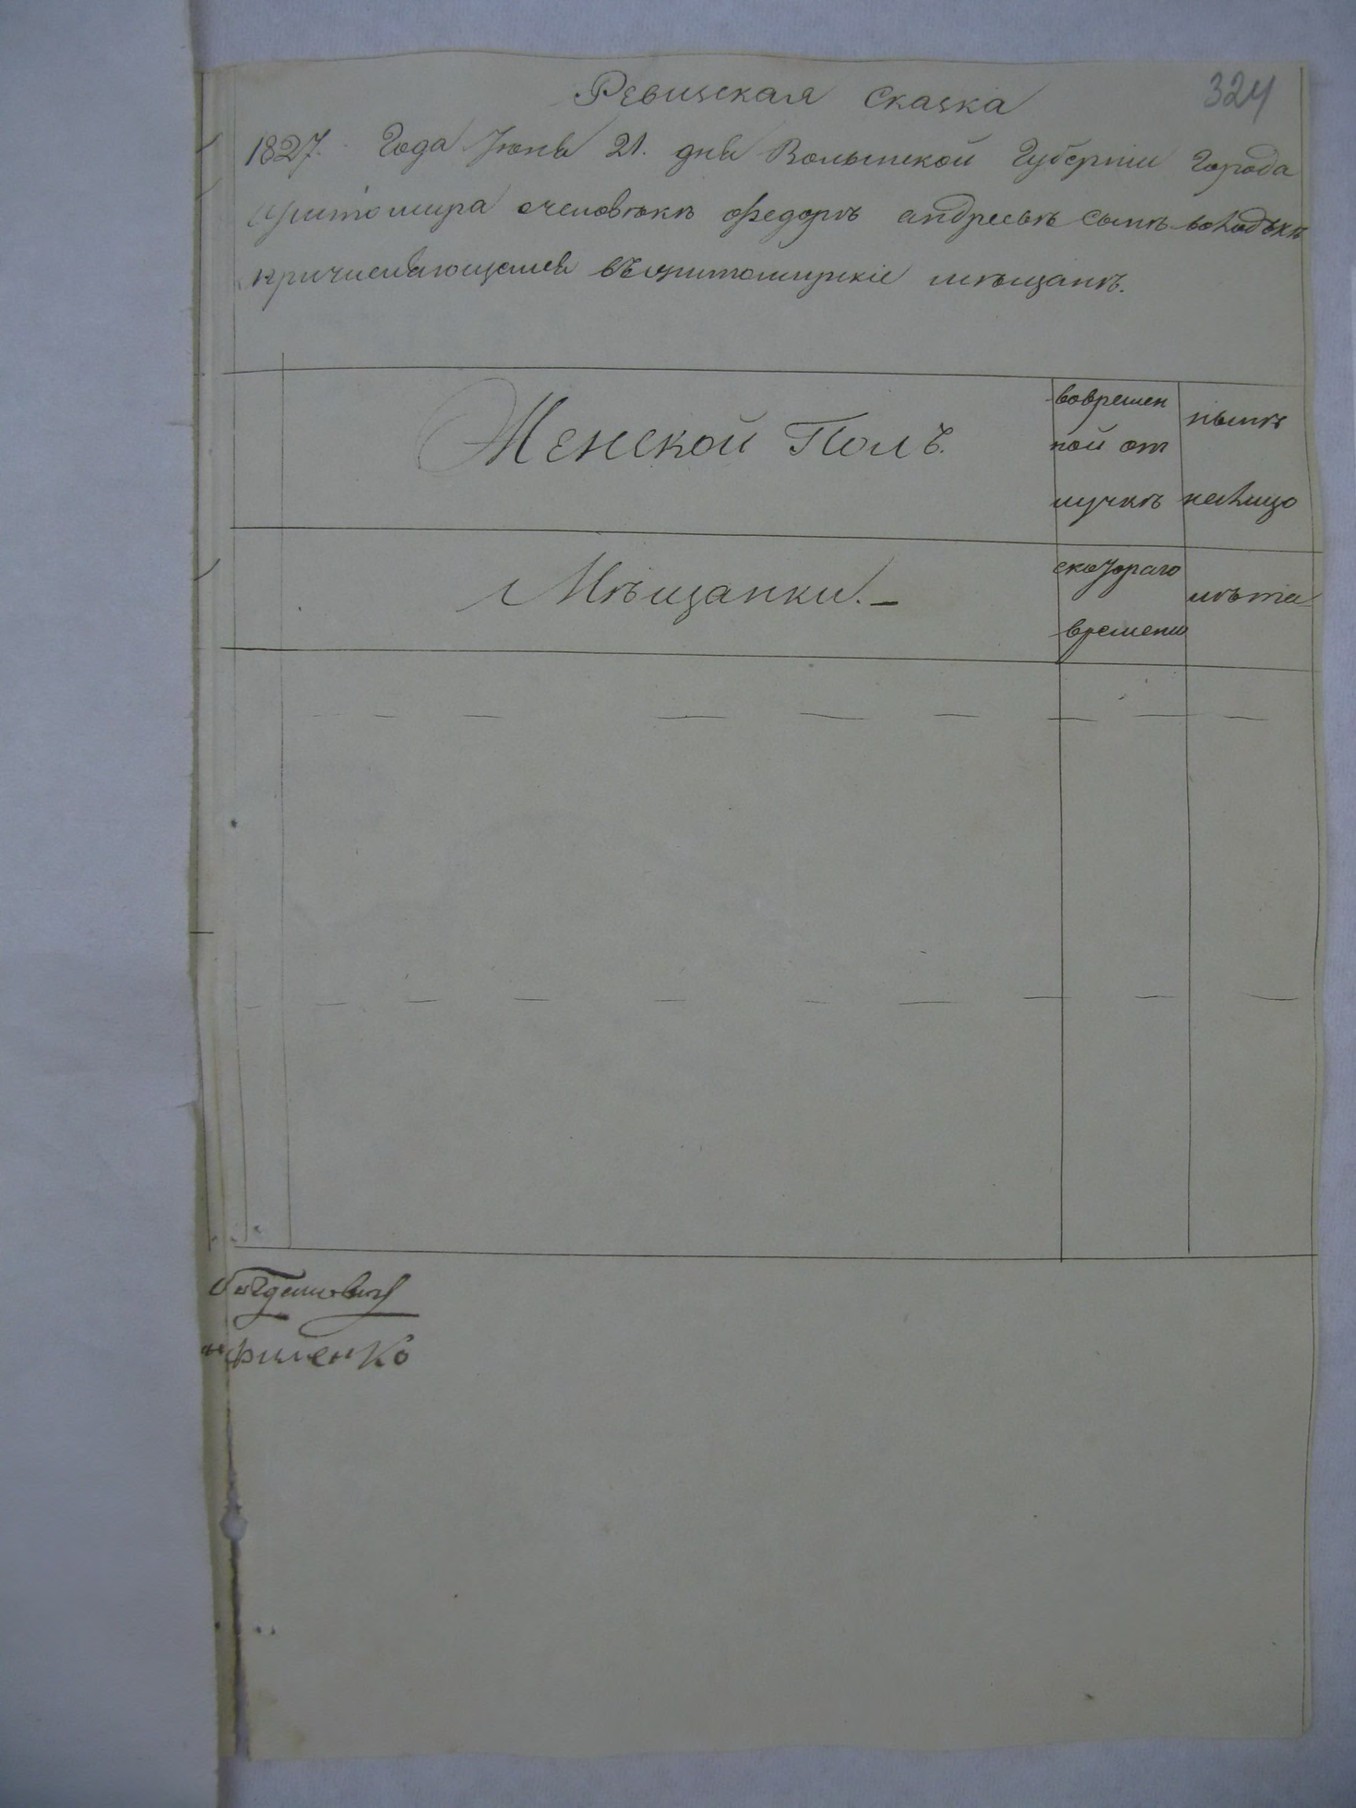 Ревизская Сказка
324
1827. Года Июня 21. дня Волынской Губернии Города
Житомира очеловѣкѣ Федорѣ андреевѣ сынѣ
причисляющемся въ житомирскіе мѣщанѣ.
Женской Полъ.
вовремен
ной от
лучкѣ
нынѣ
налицо
Мѣщанки. –
скотораго
времени
лѣта